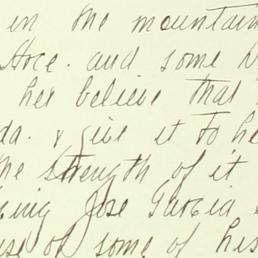 in the mountain
and some
her believe that
& give it to he
the strength of it
Jose Garcia
some of his